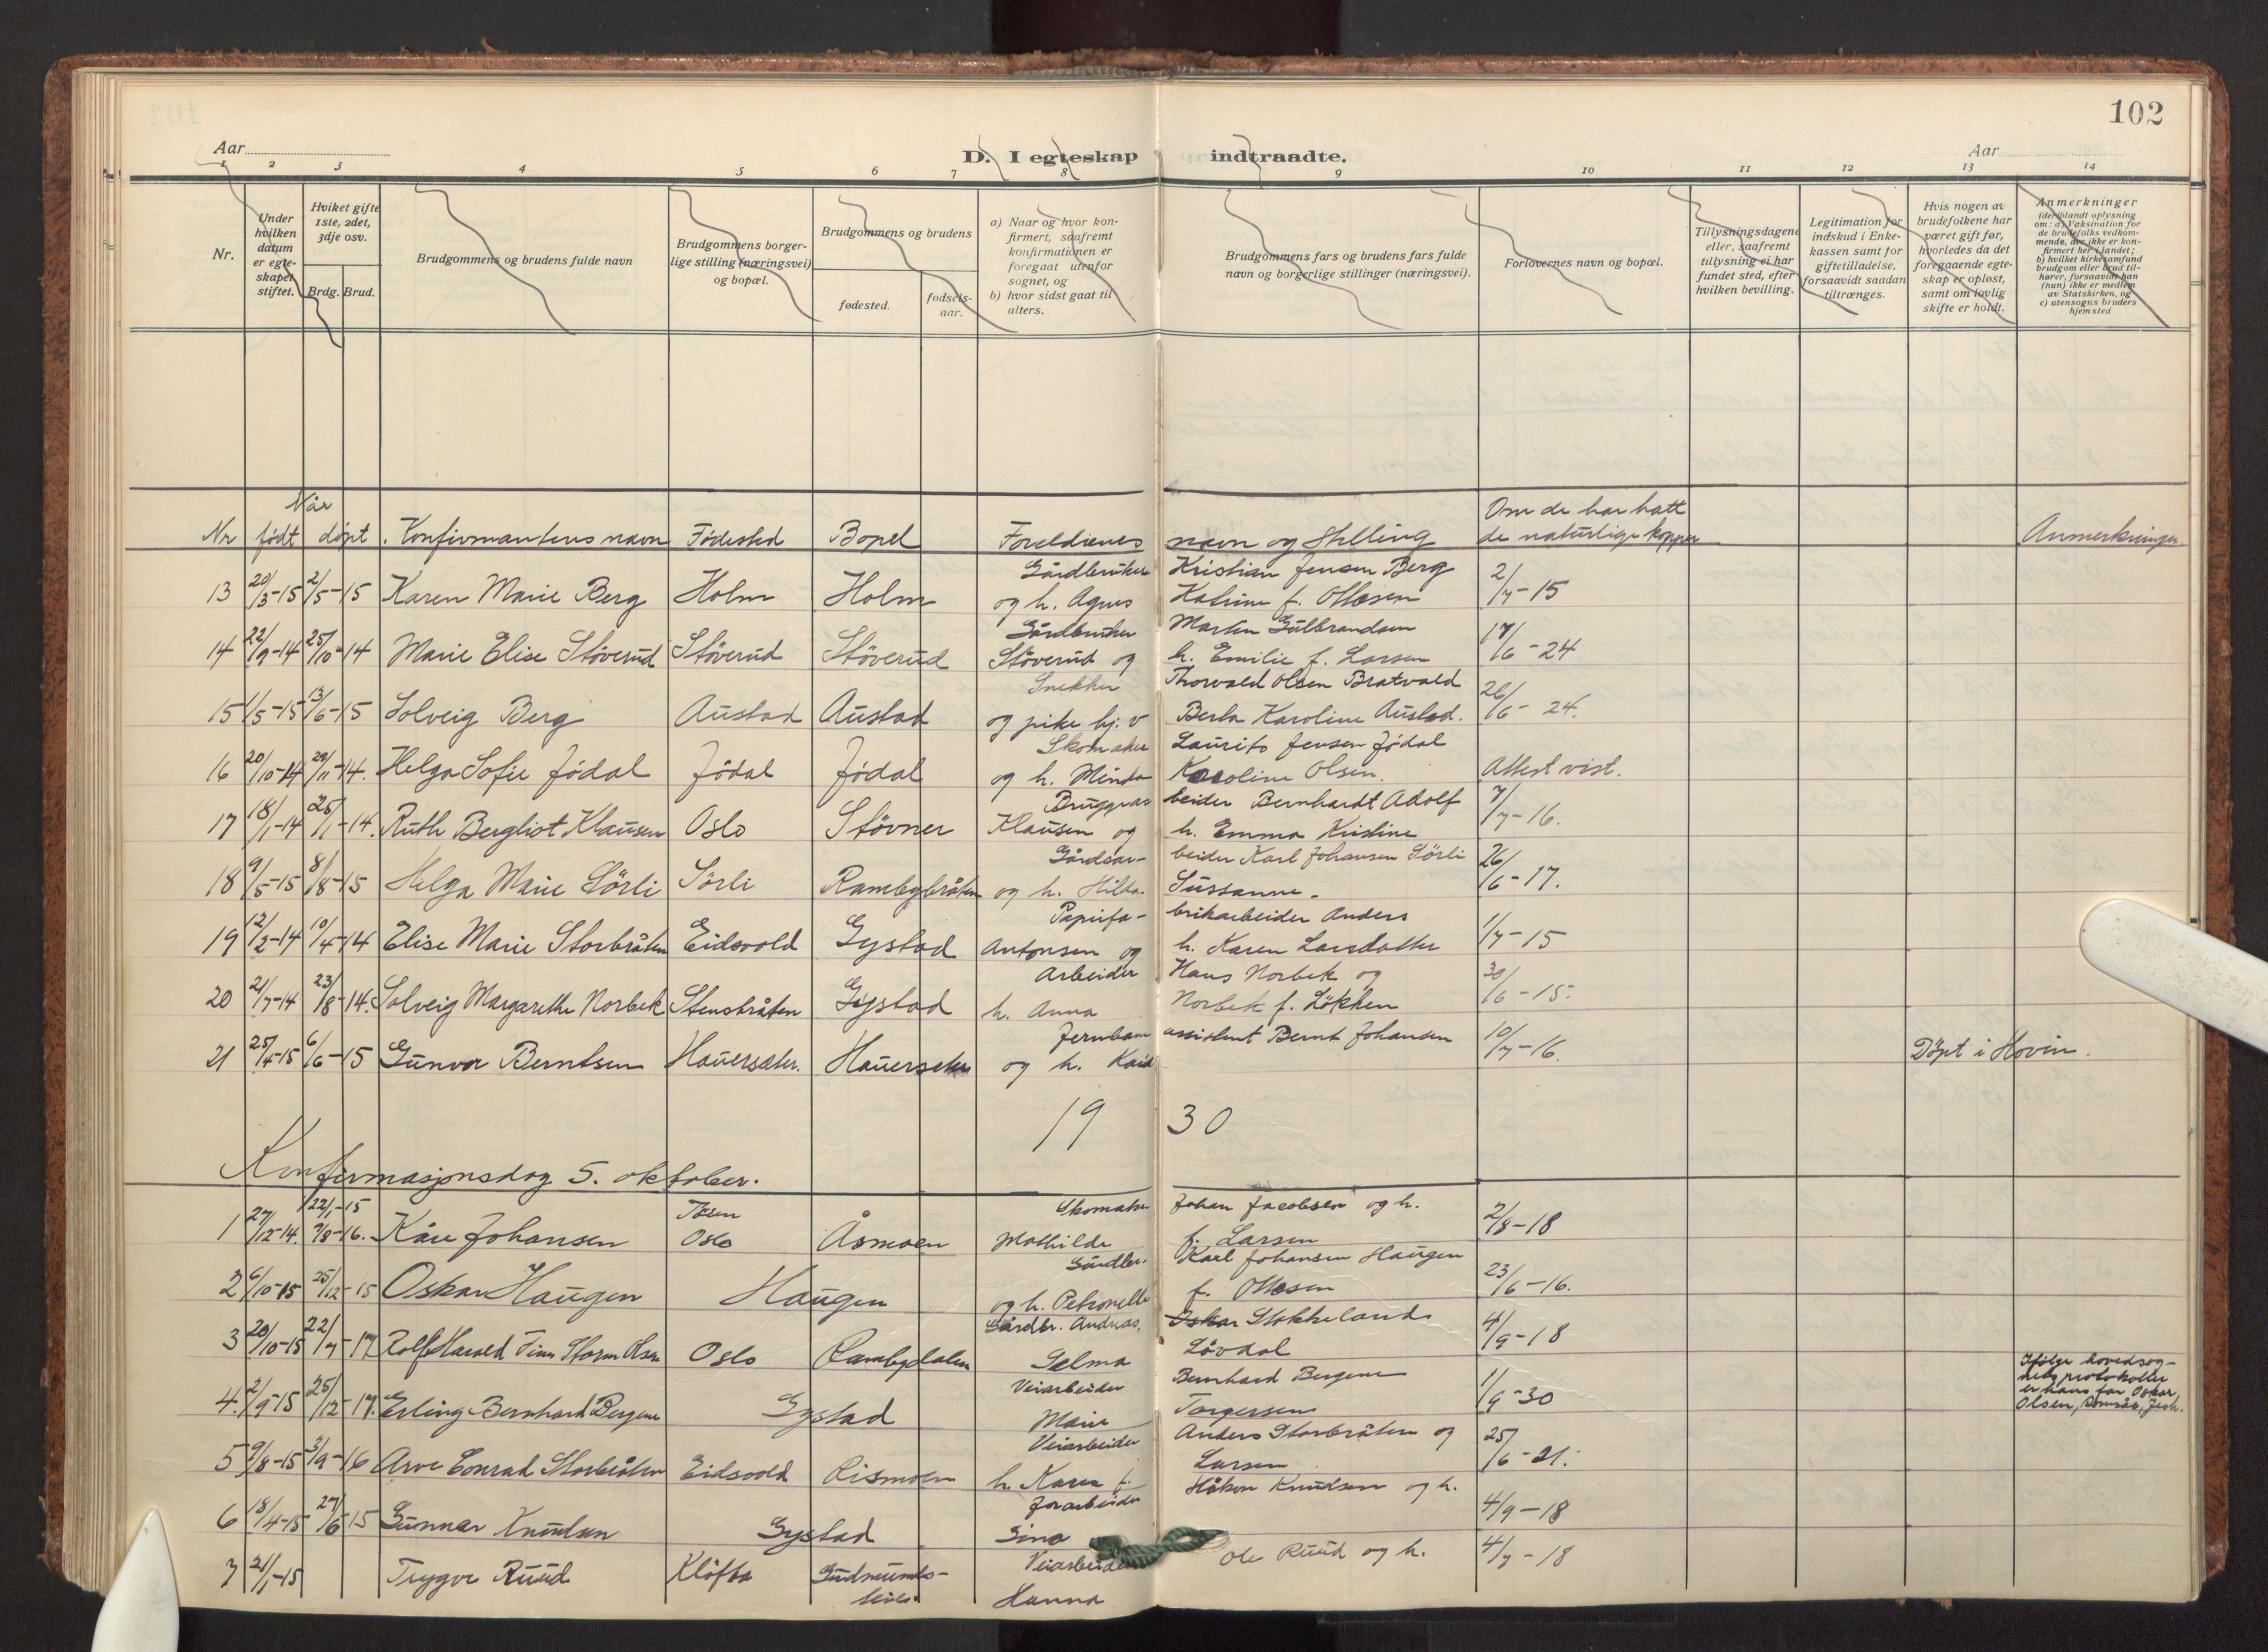 102
Aar
D. I egteskap indtraadte.
Aar
1 2 3 4 5 6 7 8 9 10 11 12 13 14
Nr.
Under hvilken datum er egteskapet stiftet.
Hviket gifte 1ste, 2det, 3dje osv.
Brdg. Brud.
Brudgommens og brudens fulde navn
Brudgommens borgerlige stilling (næringsvei) og bopæl.
Brudgommens og brudens
fødested.
fødselsaar.
a) Naar og hvor konfirmert, saafremt konfirmationen er foregaat utenfor sognet, og
b) hvor sidst gaat til alters.
Brudgommens fars og brudens fars fulde navn og borgerlige stillinger (næringsvei).
Forlovernes navn og bopæl.
Tillysningsdagene eller, saafremt tillysning ei har fundet sted, efter hvilken bevilling.
Legitimation for indskud i Enkekassen samt for giftetilladelse, forsaavidt saadan tiltrænges.
Hvis nogen av brudefolkene har været gift før, hvorledes da det foregaaende egteskap er opløst, samt om lovlig skifte er holdt.
Anmerkninger
(deriblandt oplysning om: a) Vaksination for de brudefolks vedkommende, der ikke er konfirmert her i landet;
b) hvilket kirkesamfund brudgom eller brud tilhører, forsaavidt han (hun) ikke er medlem av Statskirken, og
c) utensogns bruders hjemsted
Når
Nr født døpt. Konfirmantens navn Fødested Bopel Foreldrenes navn og Stilling Om de har hatt de naturlige kopper Anmerkninger.
Gårdbruker Kristian Jensen Berg
13 20/3-15 2/5-15 Karen Marie Berg Holm Holm og h. Agnes Katrine f. Ottesen 2/7-15
Gårdbruker Martin Gulbrandsen
14 22/9-14 25/10-14 Marie Elise Støverud Støverud Støverud Støverud og h. Emilie f. Larsen 17/6-24
Snekker Thorvald Olsen Bratvold
15 1/5-15 13/6-15 Solveig Berg Austad Austad og pike hj. v Berta Karoline Austad. 26/6-24.
Skomaker Laurits Jensen Jödal
16 20/10-14 29/11-14. Helga Sofie Jödal Jödal Jödal og h. Minda Karoline Olsen. Attest vist.
Bryggeiar beider Bernhardt Adolf
17 18/1-14 25/1-14. Ruth Bergliot Klausen Oslo Stövner Klausen og h. Emma Kristine 7/7-16.
Gårdsar- beider Karl Johansen Sörli
18 9/5-15 8/8-15 Helga Marie Sörli Sörli Rambybråten og h. Hilda. Sussanne. 26/6-17.
Papirfa- brikarbeider Anders
19 12/2-14 10/4-14 Elise Marie Storbråten Eidsvold Gystad Antonsen og h. Karen Larsdatter 1/7-15
Arbeider Hans Norbek og
20 21/7-14 23/8-14. Solveig Margarethe Norbek Stensbråten Gystad h. Anna Norbek f. Lökken 30/6-15.
Jernbane assistent Bernt Johansen
21 25/4-15 6/6-15 Gunvor Berntsen Hauerseter. Hauerseter og h. 10/7-16. Döpt i Hovin.
19 30
Konfirmasjonsdag 5. oktober.
22/1-15 Tøsen Skomaker Johan Jacobsen og h.
1 27/12-14. 9/8-16. Kåre Johansen Oslo Åsmoen Mathilde f. Larsen 2/8-18
Gårdbr. Karl Johansen Haugen
2 6/10-15 25/12-15 Oskar Haugen Haugen og h. Petronelle f. Ottesen 23/6-16.
Gårdbr. Andreas, Oskar Stokkelands
3 20/10-15 22/7-17 Rolf Harald Finn Storm Olsen Oslo Rambydalen Selma Lövdal 4/9-18
Veiarbeider Bernhard Bergene
4. 2/9-15 25/12-17. Erling Bernhard Bergene Gystad Marie Torgersen 1/9-30
Ifølge hovedsog-
nets protokoller
er hans far Oskar
Olsen,
Veiarbeider Anders Storbråten og
5 9/8-15 3/9-16 Arve Conrad Storbråten Eidsvold Rismoen h. Karen f. Larsen 25/6-21.
Jorarbeider Håkon Knudsen og h.
6 18/4-15 27/6-15 Gunnar Knudsen Gystad Gina 4/9-18
Veiarbeider Ole Ruud og h.
7 21/1-15 Trygve Ruud Klöfta Gudmunds- Hanna 4/7-18